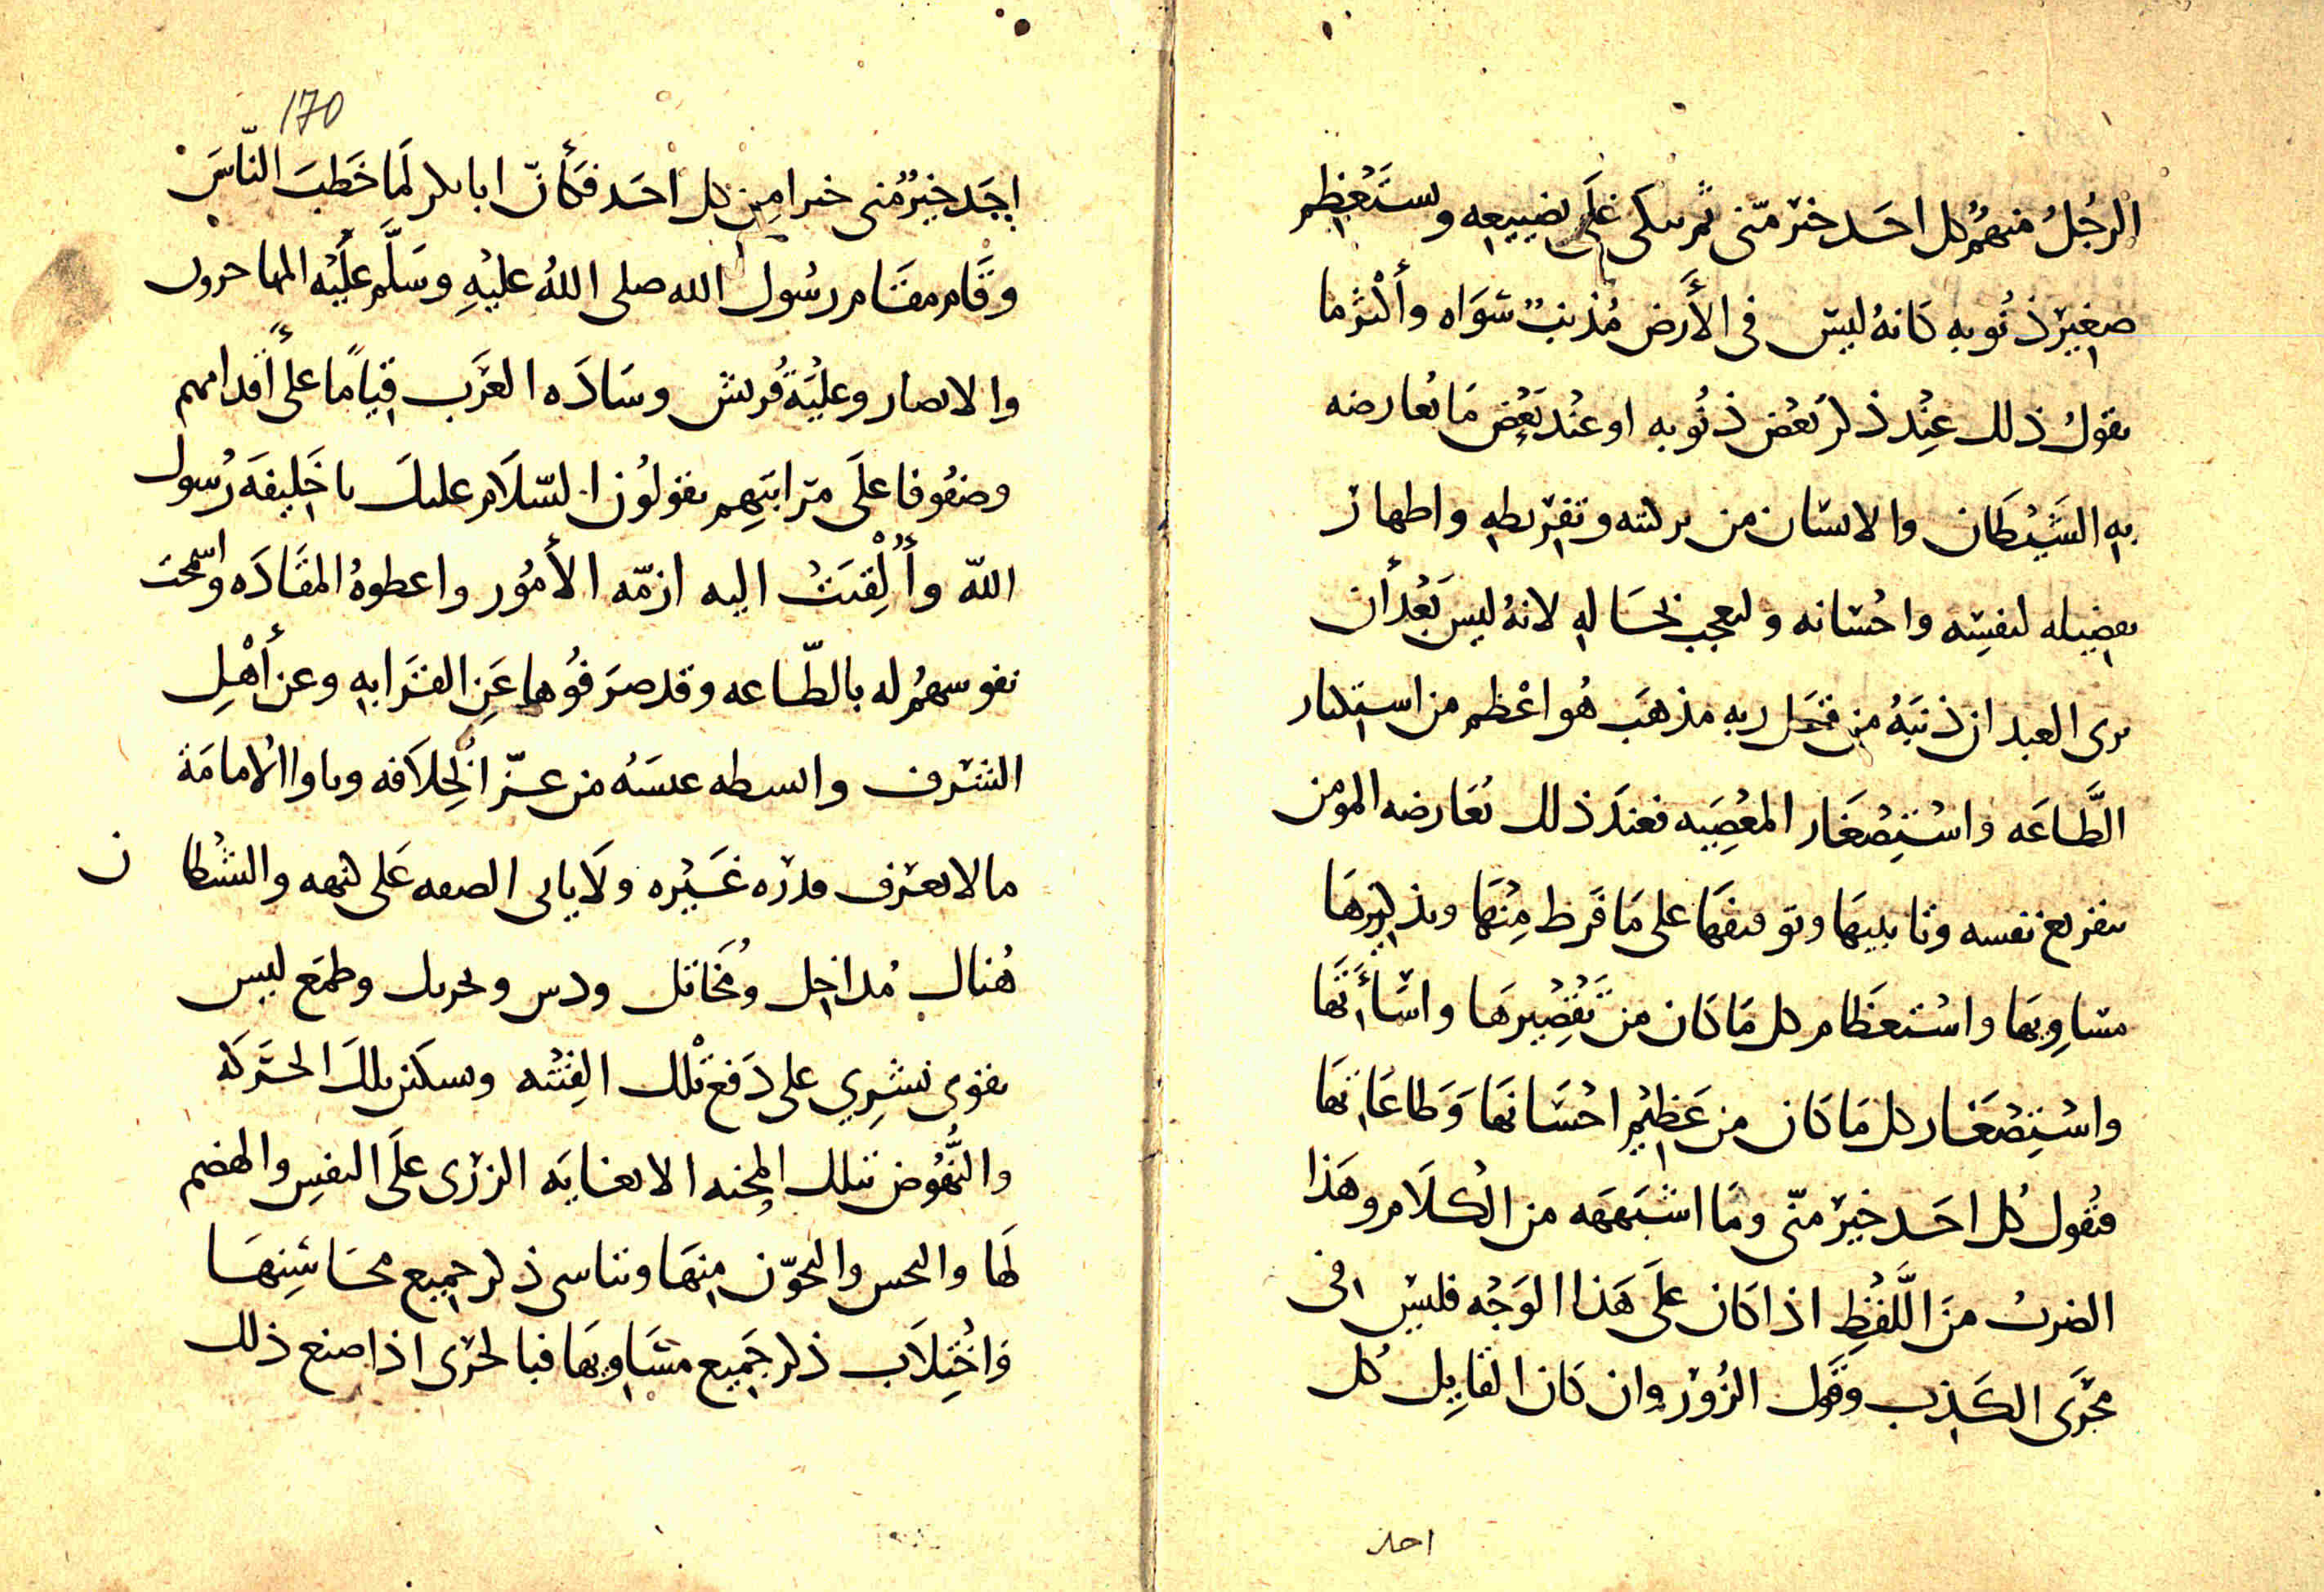 الرجُلُ منهُم كل احَد خيرٌ منّي ثم يبكي عَلَى تضييعه ويستَعْظِم
صغير ذنُوبه كانهُ ليسَ في الأَرض مُذنِبٌ سَوَاه وأكثر ما
يقولُ ذلك عِنْد ذكر بَعْض ذنُوبه او عنْد بَعْض مَا يُعارضه
به الشَيْطان والانسَان من تزكيته وتقريظه واظهار
تفضيله لنفسِه واحْسَانه والعجب بحَاله لانهُ ليس بَعْد أن
يرى العبد ان ذنبَهُ من قبَل ربه مذهَب هُو اعْظم من استكثار
الطَّاعَه واسْتِصْغَار المعْصِيَه فعندَ ذلك يُعَارضه المومن
بتقريع نفسه وتانيبهَا وتوقيفهَا على مَا فَرط مِنْهَا وتذكيرهَا
مسَاوِيهَا واسْتعظَام كل مَا كَان من تَقْصِيْرهَا واسَأَتهَا
واسْتِصْغَار كل مَا كان من عَظيْم احْسَانهَا وَطاعَاتهَا
فتقُول كُل احَد خيرٌ منّي ومَا اشبَهَه من الكلَام وهَذا
الضربُ منَ اللَّفْظِ اذا كان علَى هَذا الوَجْه فليسَ في
مجْرَى الكَذب وقَول الزُوْر وان كَان القايِل كُل
احد
170
احَد خيْرٌ مني خيرا مِن كل احَد فكَأنّ ابا بكر لَما خَطبَ النّاسَ
وقَام مقَام رسُول الله صلى اللهُ عليْهِ وسَلَّم عليْه المهاجرون
والانصار وعليَة قُريش وسَادَه العَرَب قيَامًا علىَ أقدامهم
وصفُوفا علَى مرَاتبَهِم يقولُون السّلَام عليكَ يا خَلِيفَه رُسول
اللّه وأُلْقيَتْ اليه ازمّه الأمُور واعطوهُ المقَادَه واسْمحَت
نفوسهُم له بالطّاعه وقد صرَفُوها عَن القَرابه وعن أهْلِ
الشرَف والبسطه عيسَهُ من عزّ الخِلَافه وباو الامامَة
ما لا يعرَف قدره غَيْره ولَا ياتي الصفه عَلى كنهه والشيْطان
هُناك مُداخِل ومُخاتل ودس وتحريك وطمَع ليس
يقوى بَشَرِي على دَفع تلْك الفِتْنَه وتسكين تلكَ الحرَكَه
والنُّهُوض بتلك المِحْنه الا بغايَه الزرَى علَى النفسِ والهضم
لهَا والتحوّن منهَا وتناسى ذكر جميع محَاسِنِهَا
وَاجْتِلَاب ذكر جَميع مسَاوِيهَا فبالحرَى اذا صنع ذلك